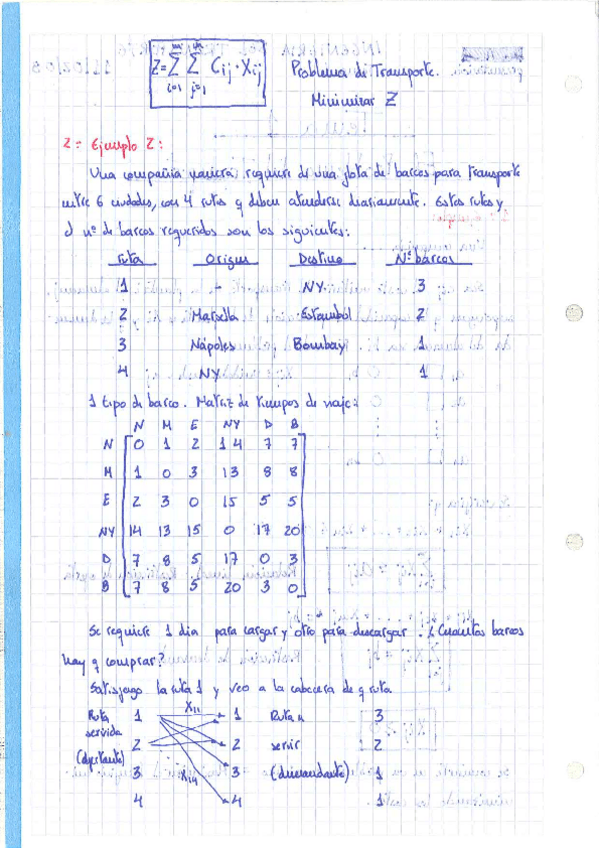 Z = Σ Σ Cij · Xij
m n
i=1 j=1
Problema de Transporte.
Minimizar Z
2 = Ejemplo 2:
Una compañía naviera requiere de una flota de barcos para transporte
entre 6 ciudades, con 4 rutas q deben atenderse diariamente. Estas rutas y
el nº de barcos requeridos son los siguientes:
ruta Origen Destino Nº barcos
1 - NY. 3
2 Marsella Estambul 2
3 Nápoles Bombay 1
4 NY 1
1 tipo de barco. Matriz de tiempos de viaje:
N M E NY D B
N 0 1 2 14 7 7
M 1 0 3 13 8 8
E 2 3 0 15 5 5
NY 14 13 15 0 17 20
D 7 8 5 17 0 3
B 7 8 5 20 3 0
Se requiere 1 dia para cargar y otro para descargar. ¿Cuantos barcos
hay q comprar?
Satisfago la ruta 1 y veo a la cabecera de q ruta
Ruta 1 X11 1 Ruta a 3
servida
2 2 servir 2
(ofertante)
3 X14 3 (demandante) 1
4 4 1